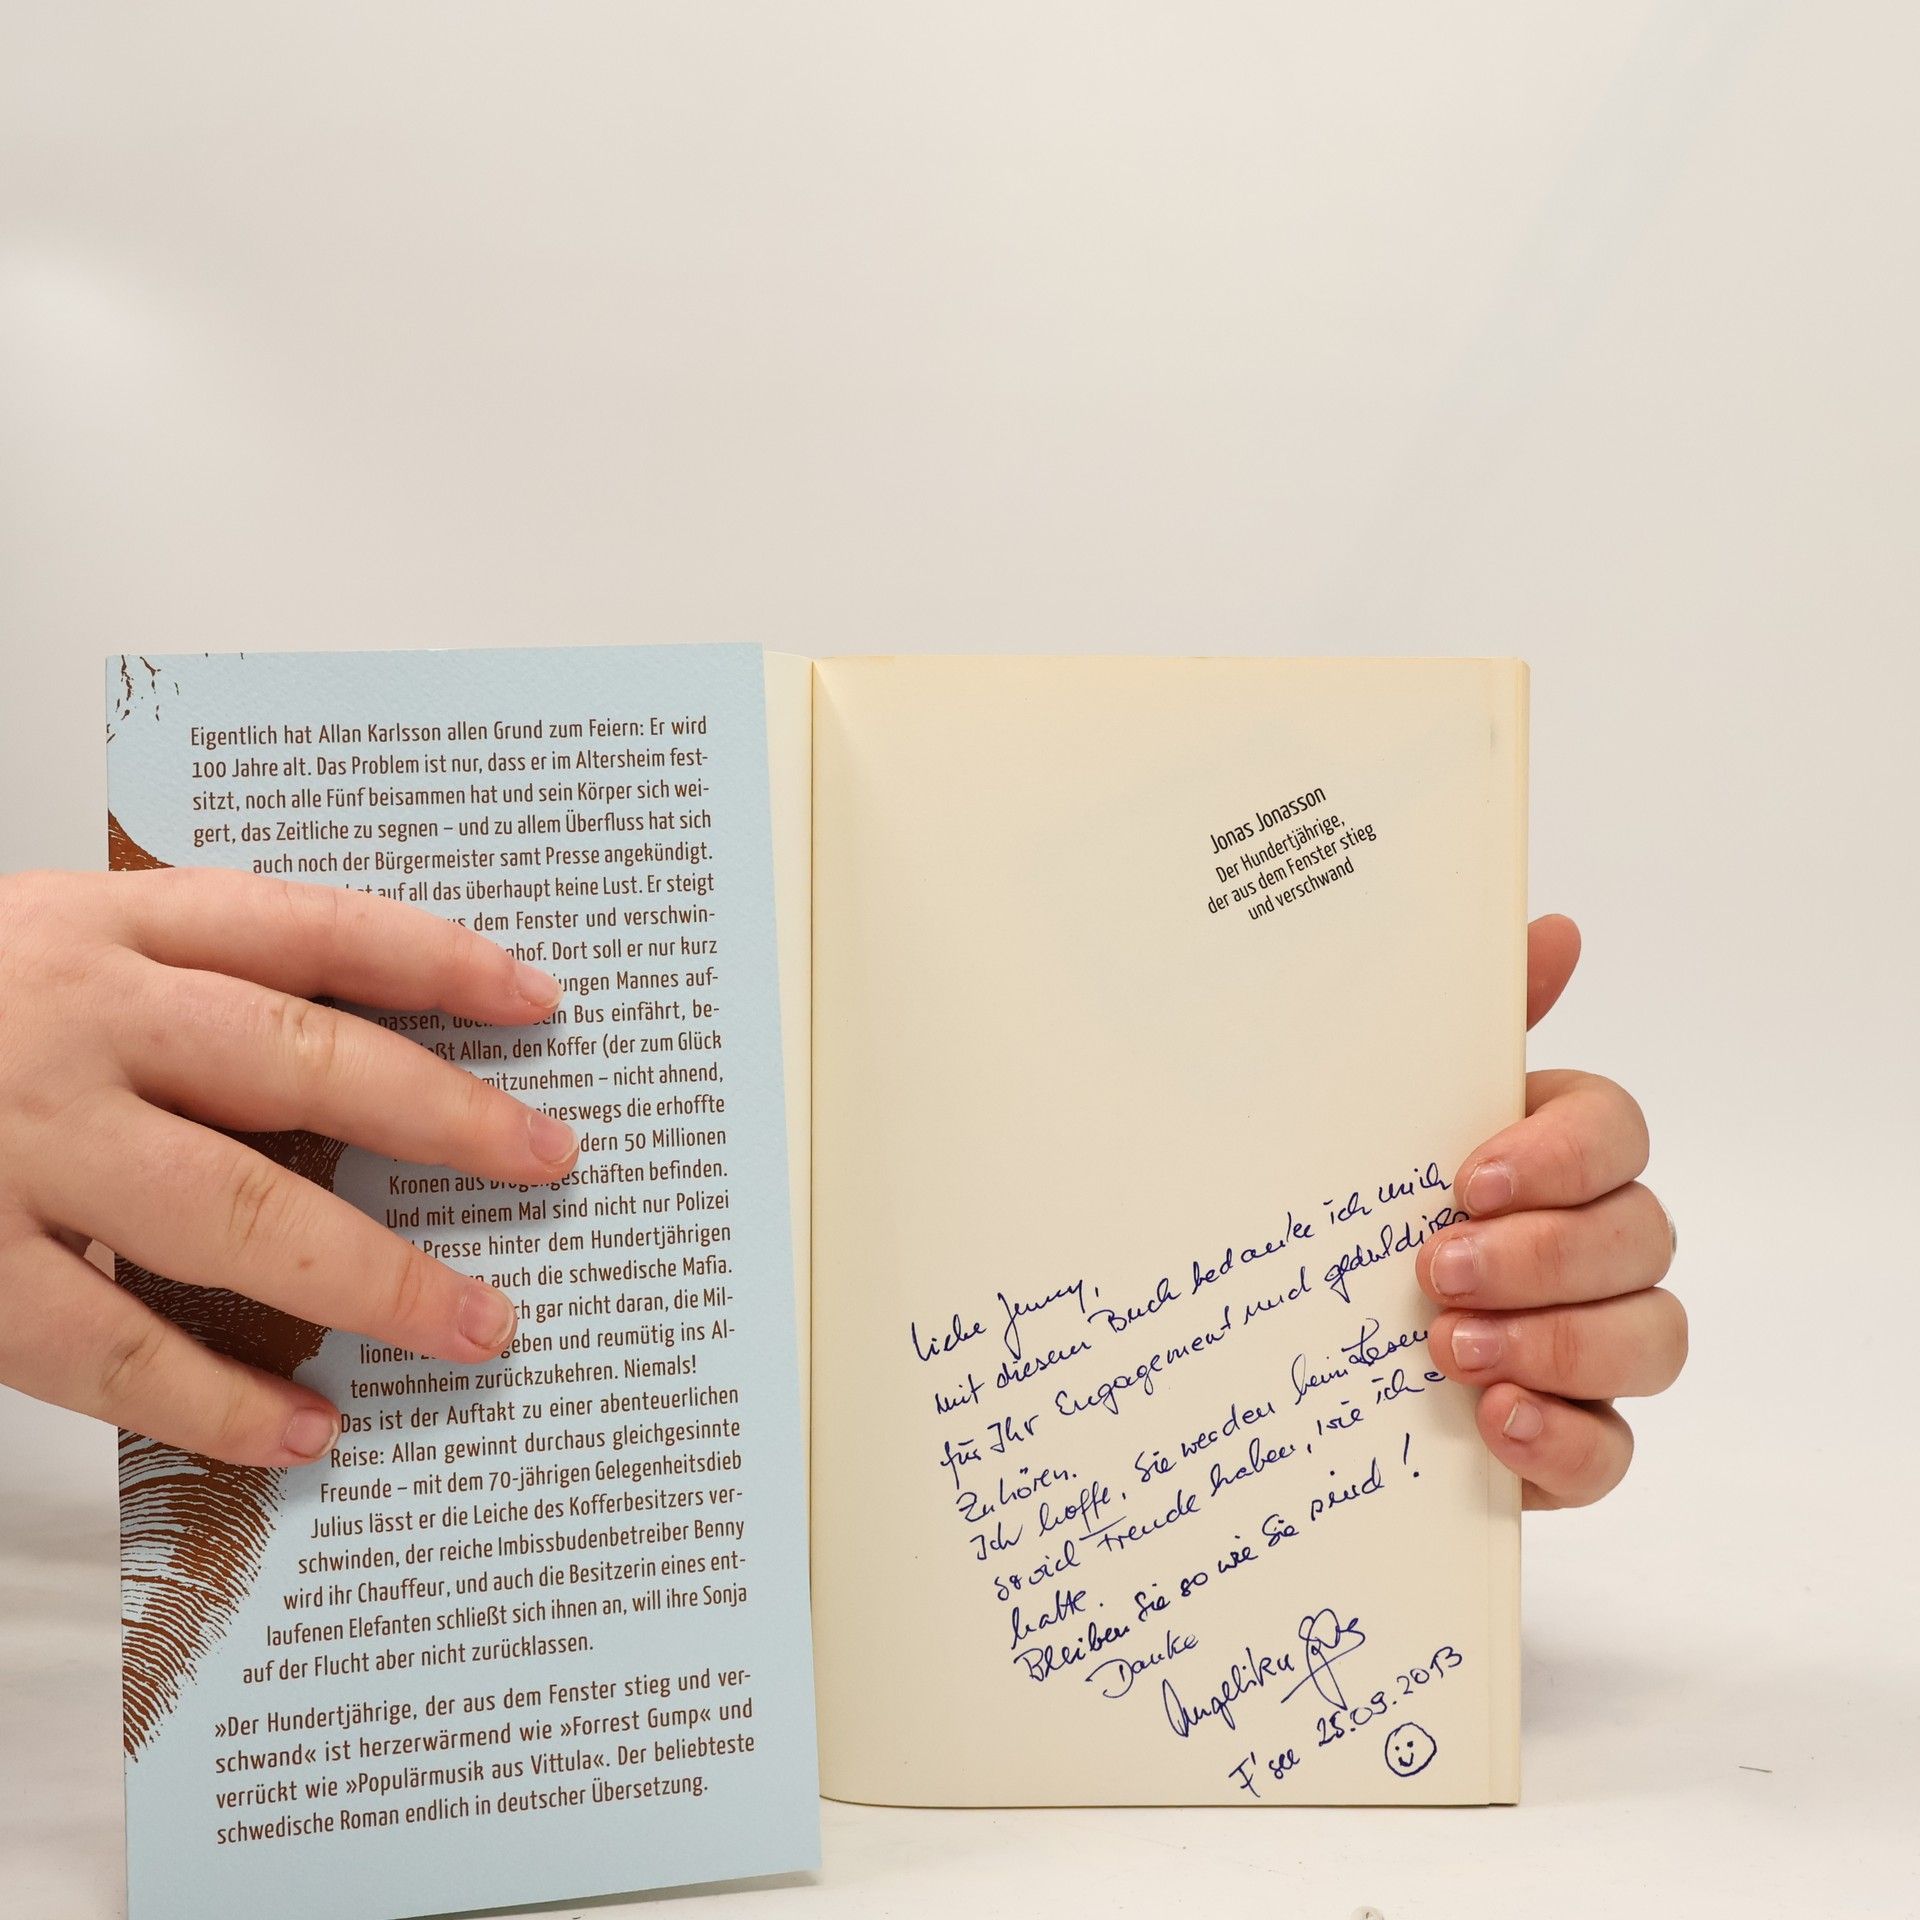 Eigentlich hat Allan Karlsson allen Grund zum Feiern: Er wird
100 Jahre alt. Das Problem ist nur, dass er im Altersheim fest-
sitzt, noch alle Fünf beisammen hat und sein Körper sich wei-
gert, das Zeitliche zu segnen – und zu allem Überfluss hat sich
auch noch der Bürgermeister samt Presse angekündigt.
auf all das überhaupt keine Lust. Er steigt
dem Fenster und verschwin-
Dort soll er nur kurz
Mannes auf-
passen, Bus einfährt, be-
Allan, den Koffer (der zum Glück
mitzunehmen – nicht ahnend,
die erhoffte
50 Millionen
Kronen aus befinden.
Und mit einem Mal sind nicht nur Polizei
Presse hinter dem Hundertjährigen
auch die schwedische Mafia.
gar nicht daran, die Mil-
lionen und reumütig ins Al-
tenwohnheim zurückzukehren. Niemals!
Das ist der Auftakt zu einer abenteuerlichen
Reise: Allan gewinnt durchaus gleichgesinnte
Freunde – mit dem 70-jährigen Gelegenheitsdieb
Julius lässt er die Leiche des Kofferbesitzers ver-
schwinden, der reiche Imbissbudenbetreiber Benny
wird ihr Chauffeur, und auch die Besitzerin eines ent-
laufenen Elefanten schließt sich ihnen an, will ihre Sonja
auf der Flucht aber nicht zurücklassen.
»Der Hundertjährige, der aus dem Fenster stieg und ver-
schwand« ist herzerwärmend wie »Forrest Gump« und
verrückt wie »Populärmusik aus Vittula«. Der beliebteste
schwedische Roman endlich in deutscher Übersetzung.
Jonas Jonasson
Der Hundertjährige,
der aus dem Fenster stieg
und verschwand
Liebe Jenny,
mit diesem Buch bedanke ich mich
für Ihr Engagement und
Zuhören.
Ich hoffe, Sie werden beim Lesen
soviel Freude haben, wie ich
hatte.
Bleiben Sie so wie Sie sind!
Danke
Angelika
F'see 25.09.2013